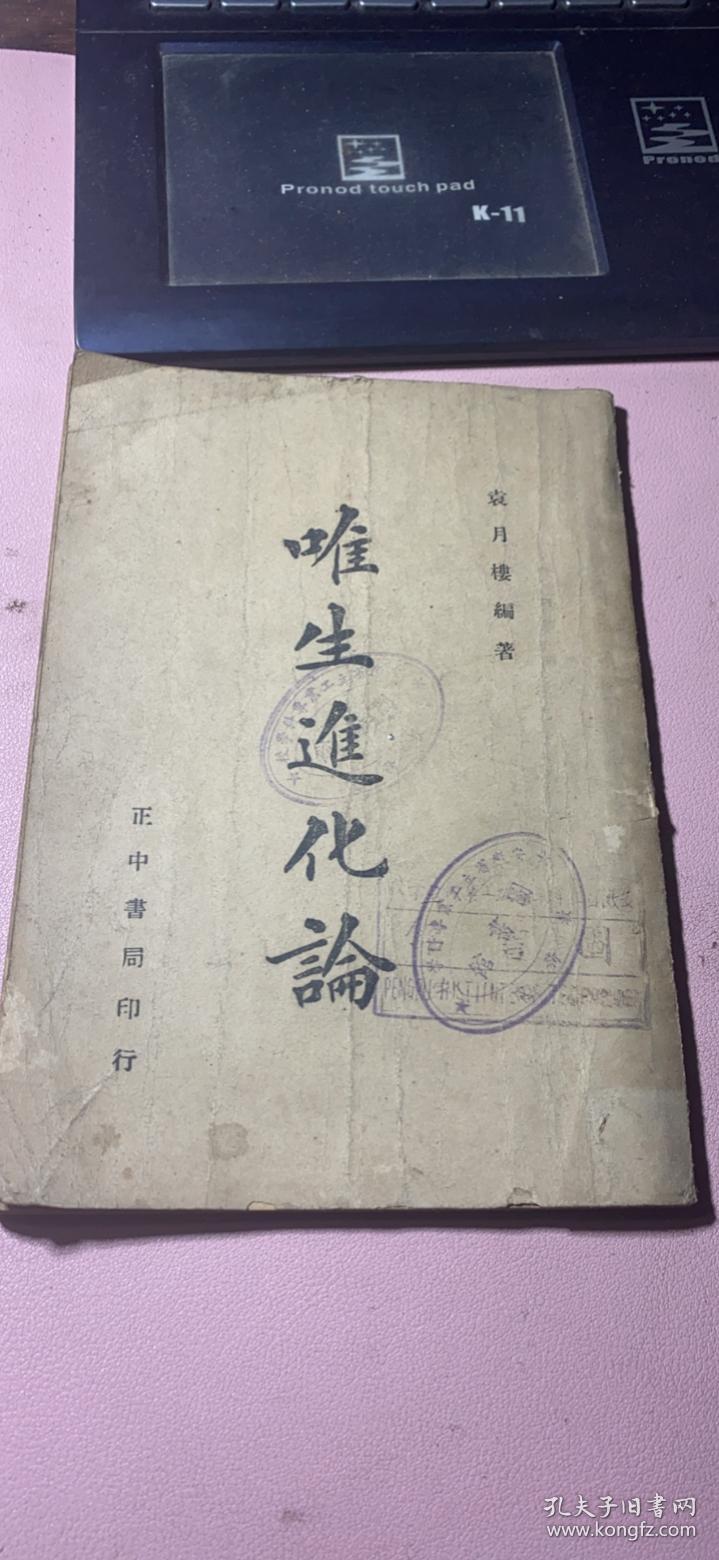 Pronod touch pad
K-11
Pronod
袁月樓編著
唯生進化論
正中書局印行
孔夫子旧书网
www.kongfz.com